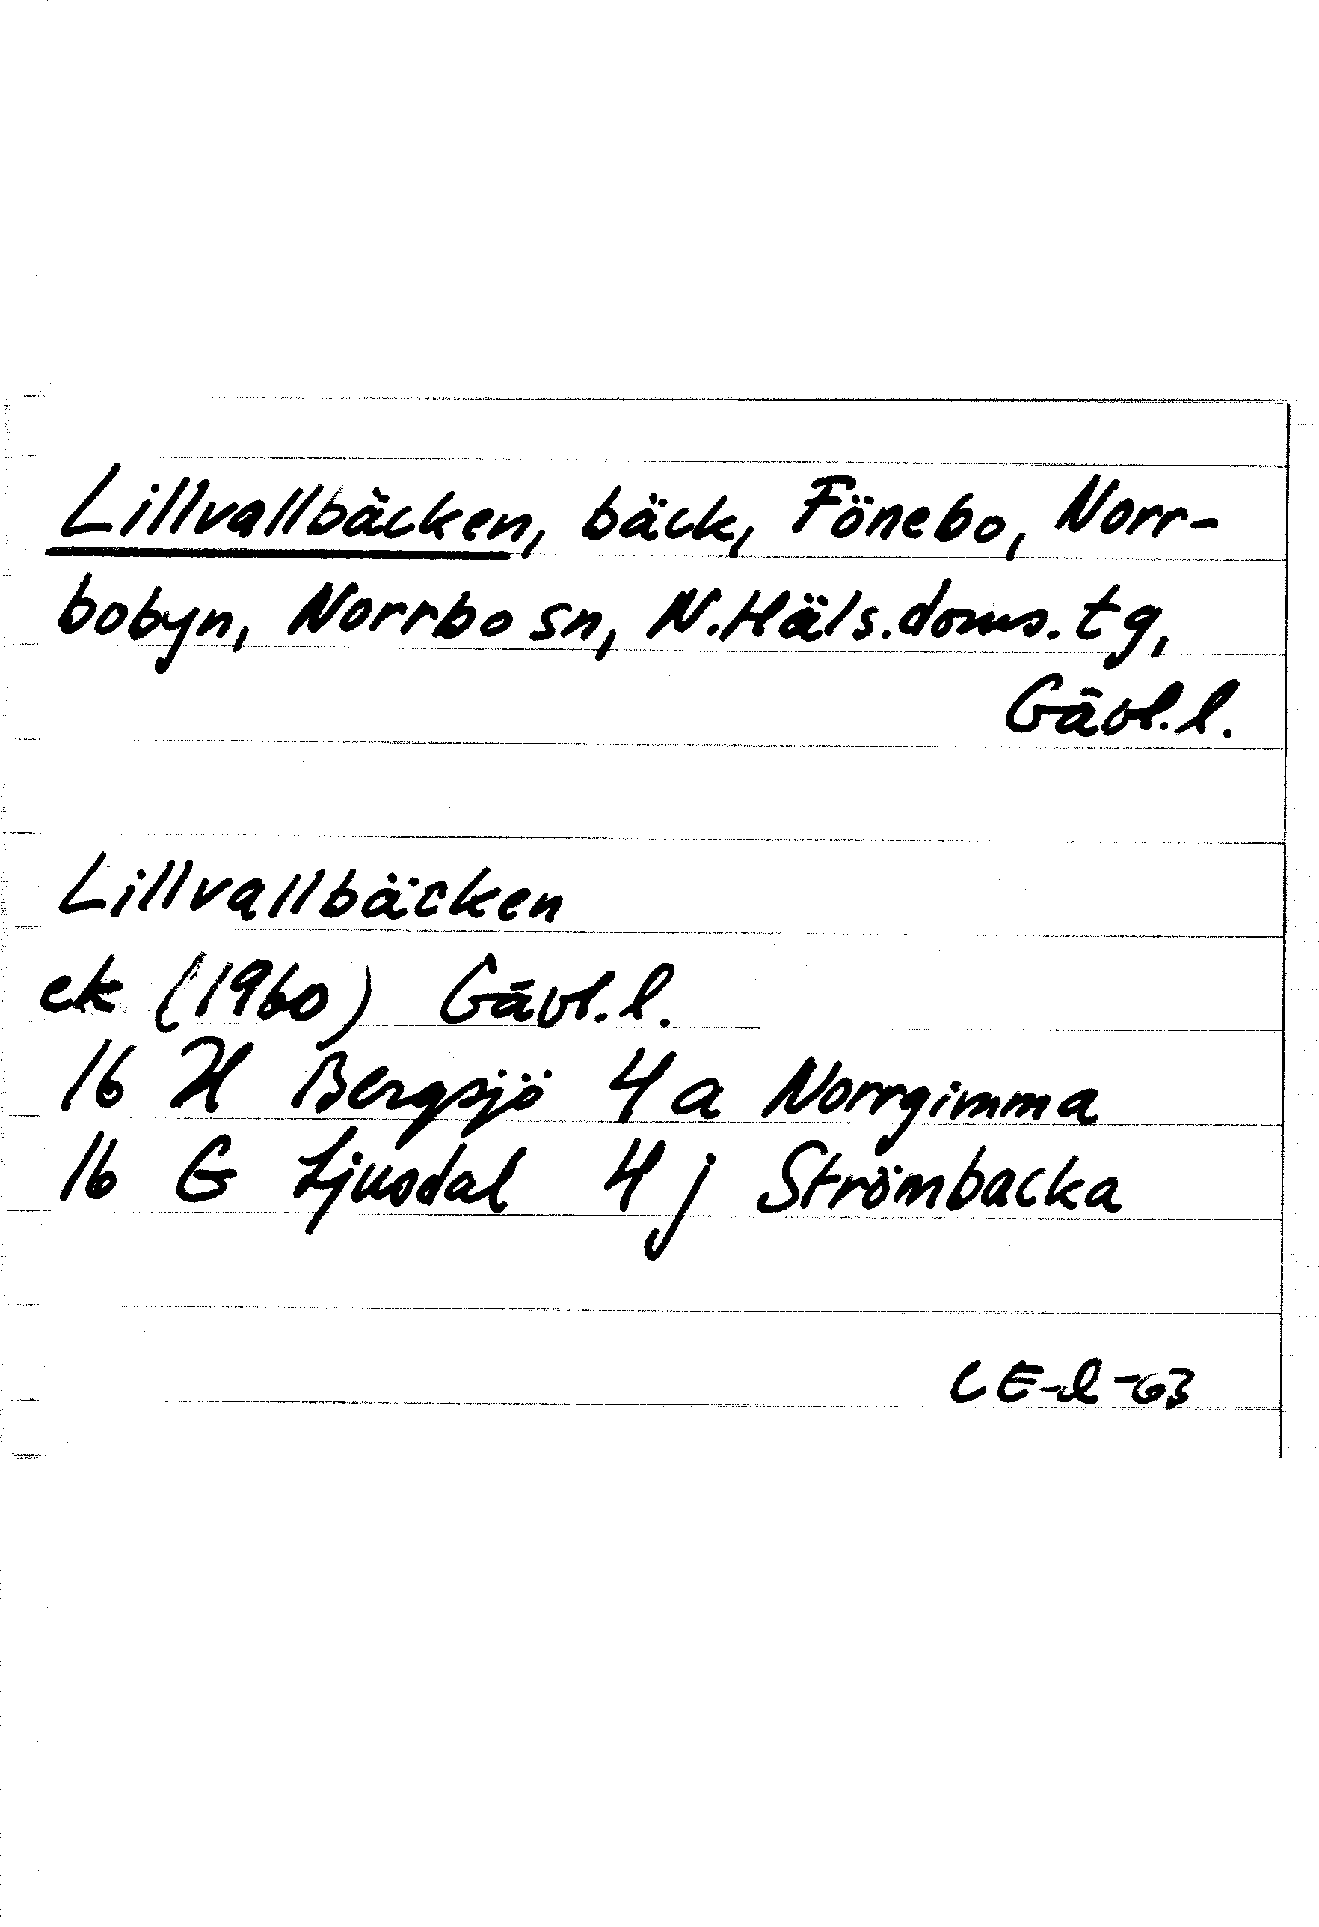 Lillvallbäcken, bäck, Fönebo, Norr-
bobyn, Norrbo sn, N.Häls.doms.tg,
Gävl.l.
Lillvallbäcken
ek (1960) Gävl.l.
16 H Bergsjö 4 a Norrgimma
16 G Ljusdal 4 j Strömbacka
CE-l-63